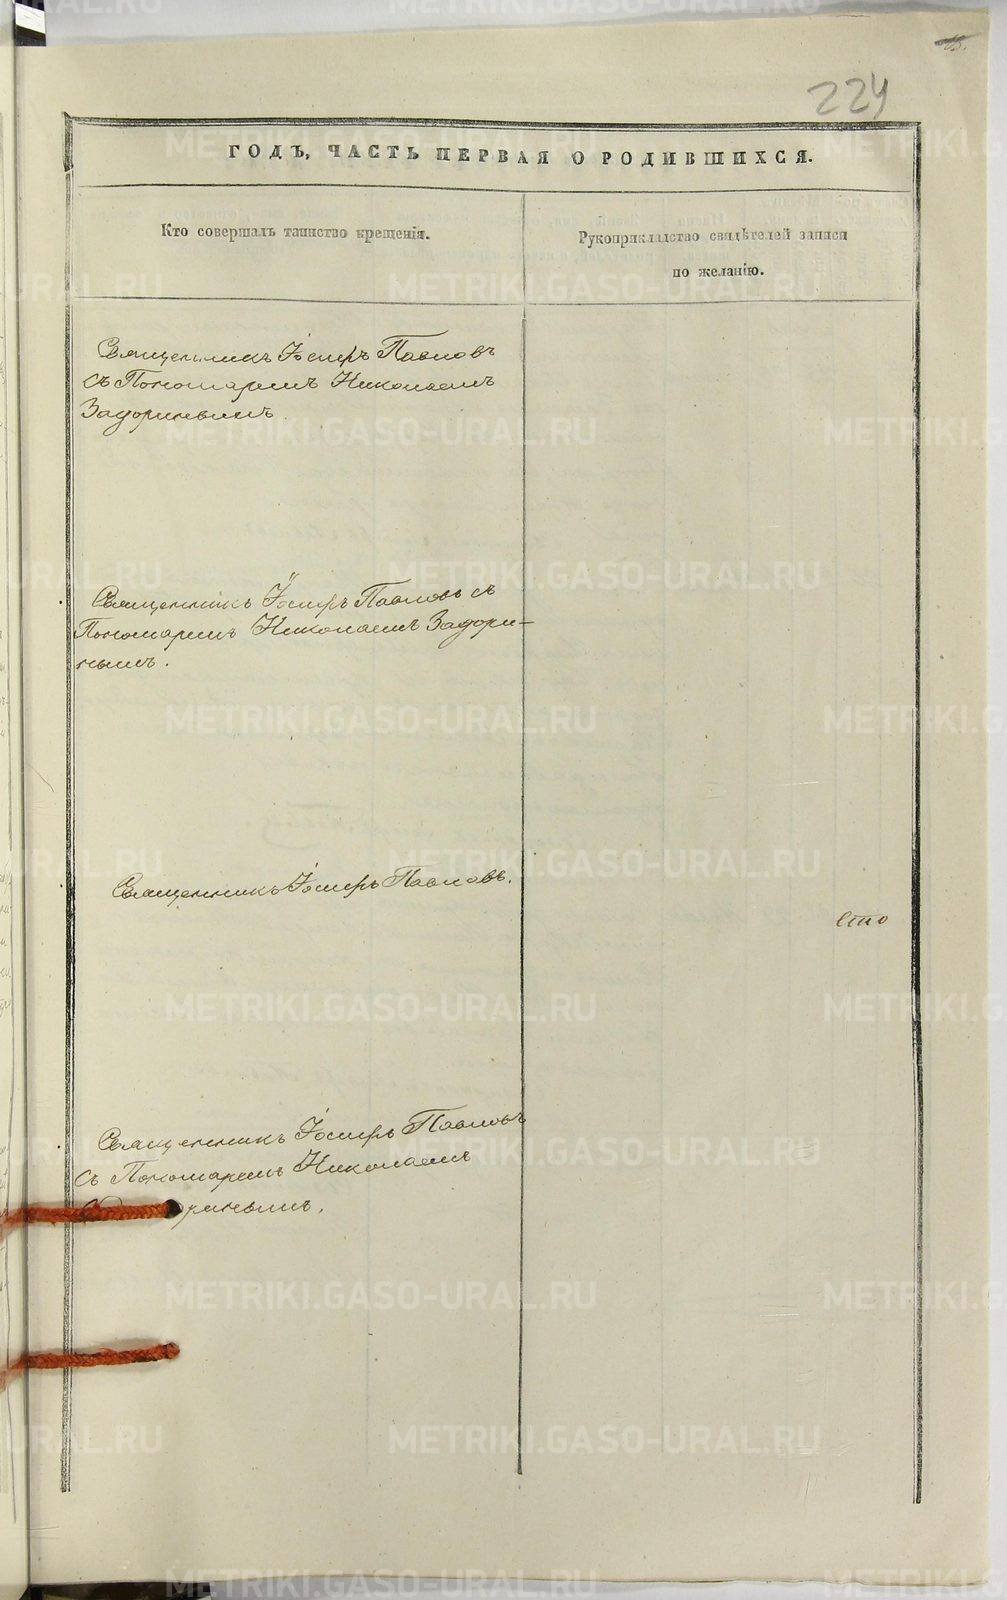 224
ГОДЪ, ЧАСТЬ ПЕРВАЯ О РОДИВШИХСЯ.
Кто совершалъ таинство крещенія.
Рукоприкладство свидѣтелей записи
по желанію.
Священникъ Іосифъ Павловъ
съ Пономаремъ Николаемъ
Задоринымъ.
Священникъ Іосифъ Павловъ съ
Пономаремъ Николаемъ Задори-
нымъ.
Священникъ Іосифъ Павловъ.
Сто
Священникъ Іосифъ Павловъ
съ Пономаремъ Николаемъ
Задоринымъ.
METRIKI.GASO-URAL.RU